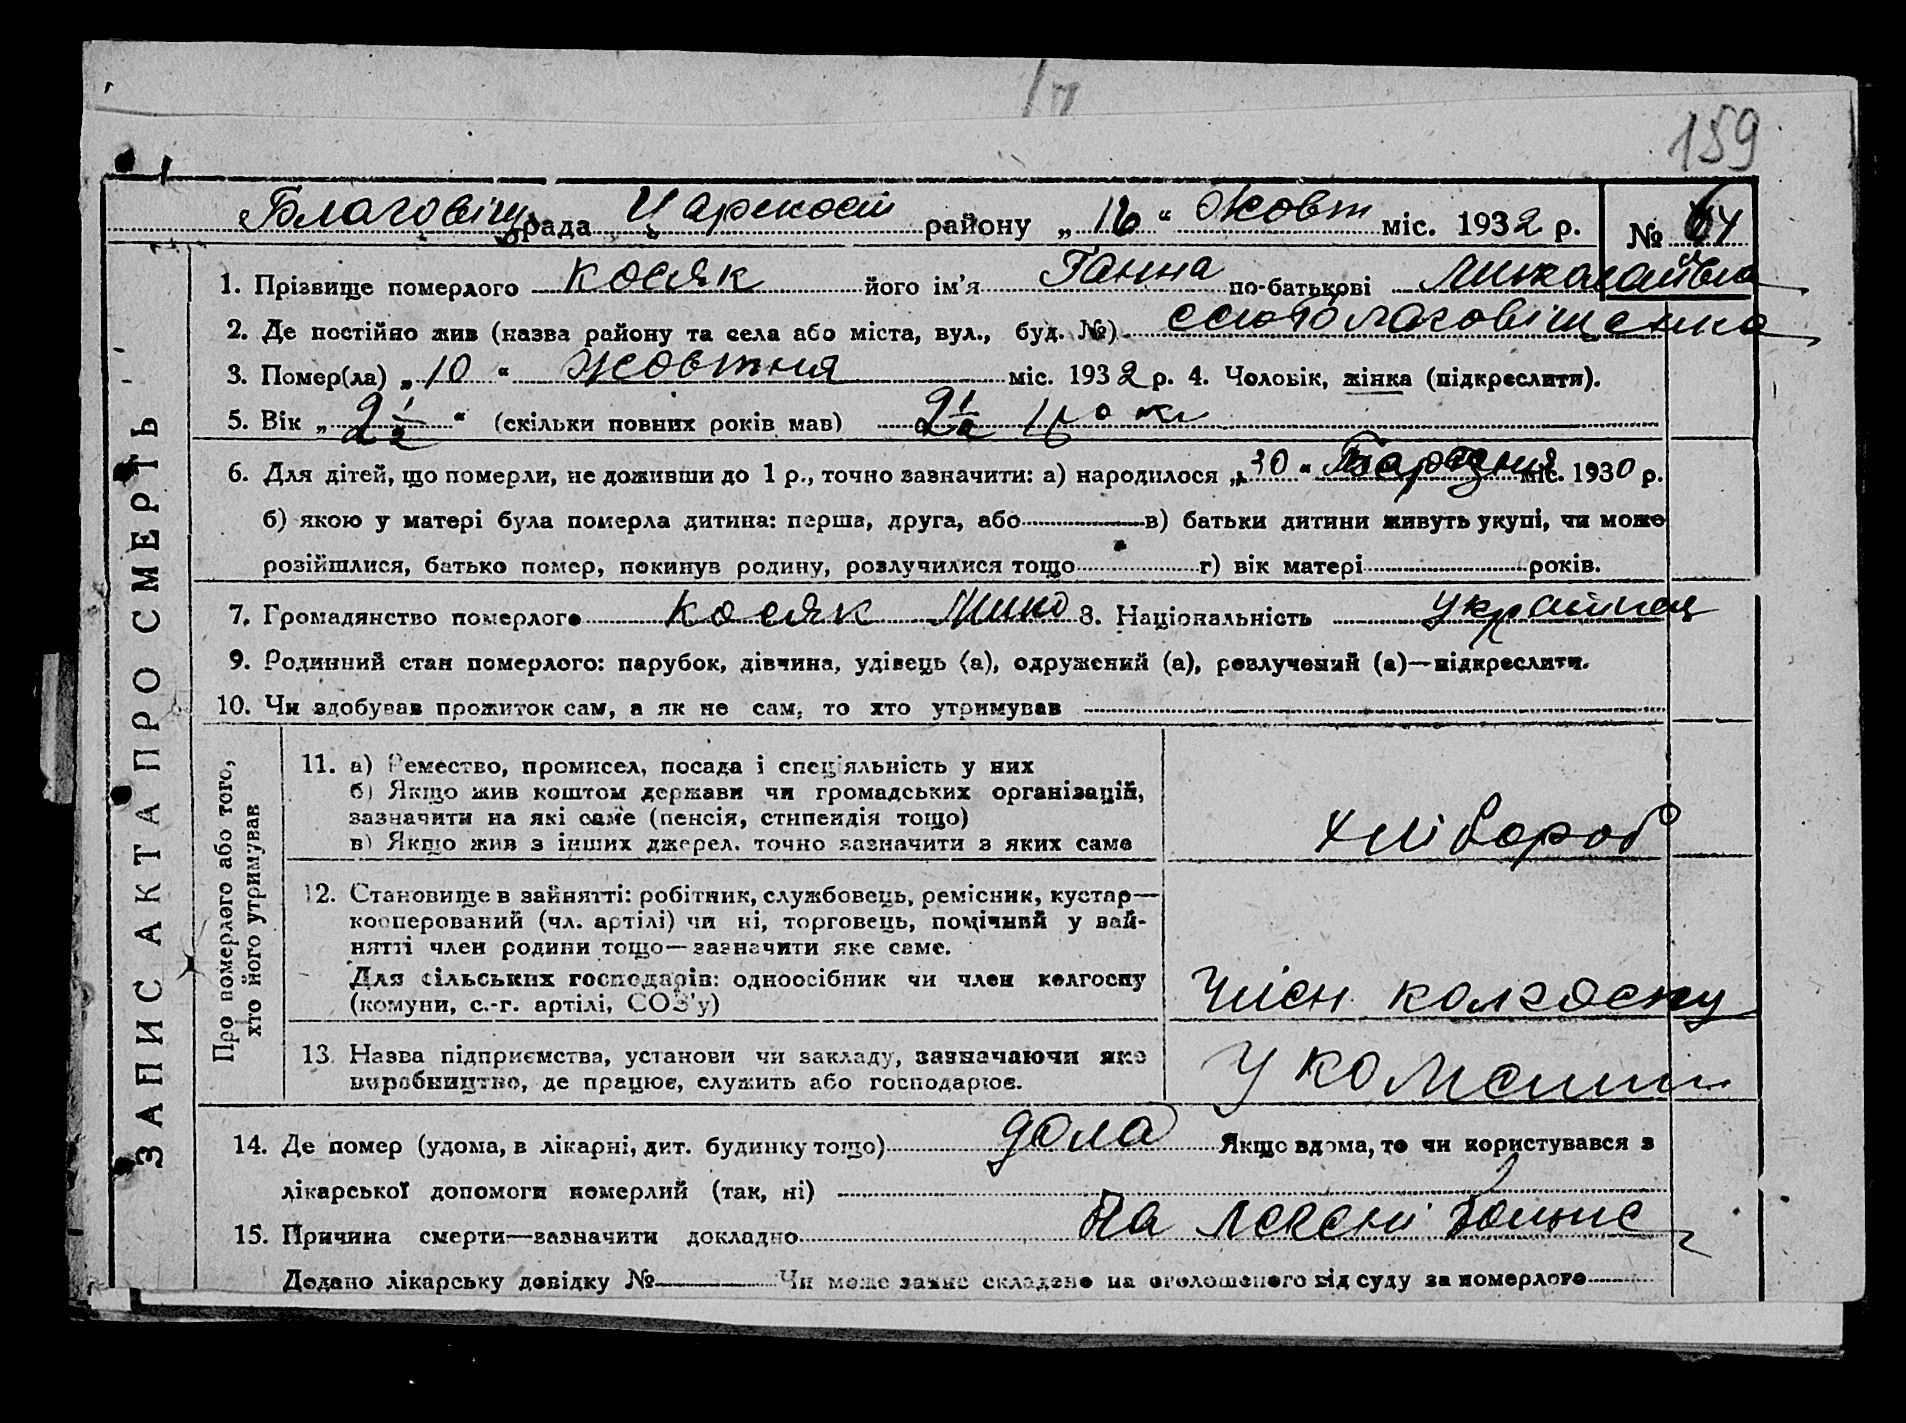 159
Благовіщ рада Царекост району „16“ Жовт міс. 1932 р. № 64
ЗАПИС АКТА ПРО СМЕРТЬ
1. Прізвище померлого Косяк його ім'я Ганна по-батькові Миколаївна
2. Де постійно жив (назва району та села або міста, вул., буд. №) село Благовіщенка
3. Помер(ла) „10“ жовтня міс. 1932 р. 4. Чоловік, жінка (підкреслити).
5. Вік „2½“ (скільки повних років мав) 2½
6. Для дітей, що померли, не доживши до 1 р., точно зазначити: а) народилося „30“ міс. 1930 р.
б) якою у матері була померла дитина: перша, друга, або в) батьки дитини живуть укупі, чи може
розійшлися, батько помер, покинув родину, розлучилися тощо г) вік матері років.
7. Громадянство померлого Косяк 8. Національність Українец
9. Родинний стан померлого: парубок, дівчина, удівець (а), одружений (а), розлучений (а)—підкреслити.
10. Чи здобував прожиток сам, а як не сам, то хто утримував
Про померлого або того, хто його утримував
11. а) Ремество, промисел, посада і спеціяльність у них
б) Якщо жив коштом держави чи громадських організацій,
зазначити на які саме (пенсія, стипендія тощо)
в) Якщо жив з інших джерел, точно зазначити з яких саме
хлібороб
12. Становище в зайнятті: робітник, службовець, ремісник, кустар—
кооперований (чл. артілі) чи ні, торговець, помічний у зай-
нятті член родини тощо—зазначити яке саме.
Для сільських господарів: одноосібник чи член колгоспу
(комуни, с.-г. артілі, СОЗ'у)
член колгоспу
13. Назва підприємства, установи чи закладу, зазначаючи яке
виробництво, де працює, служить або господарює.
14. Де помер (удома, в лікарні, дит. будинку тощо) дома Якщо вдома, то чи користувався з
лікарської допомоги померлий (так, ні)
15. Причина смерти—зазначити докладно На легені
Додано лікарську довідку № Чи може запис складено на оголошеного від суду за померлого